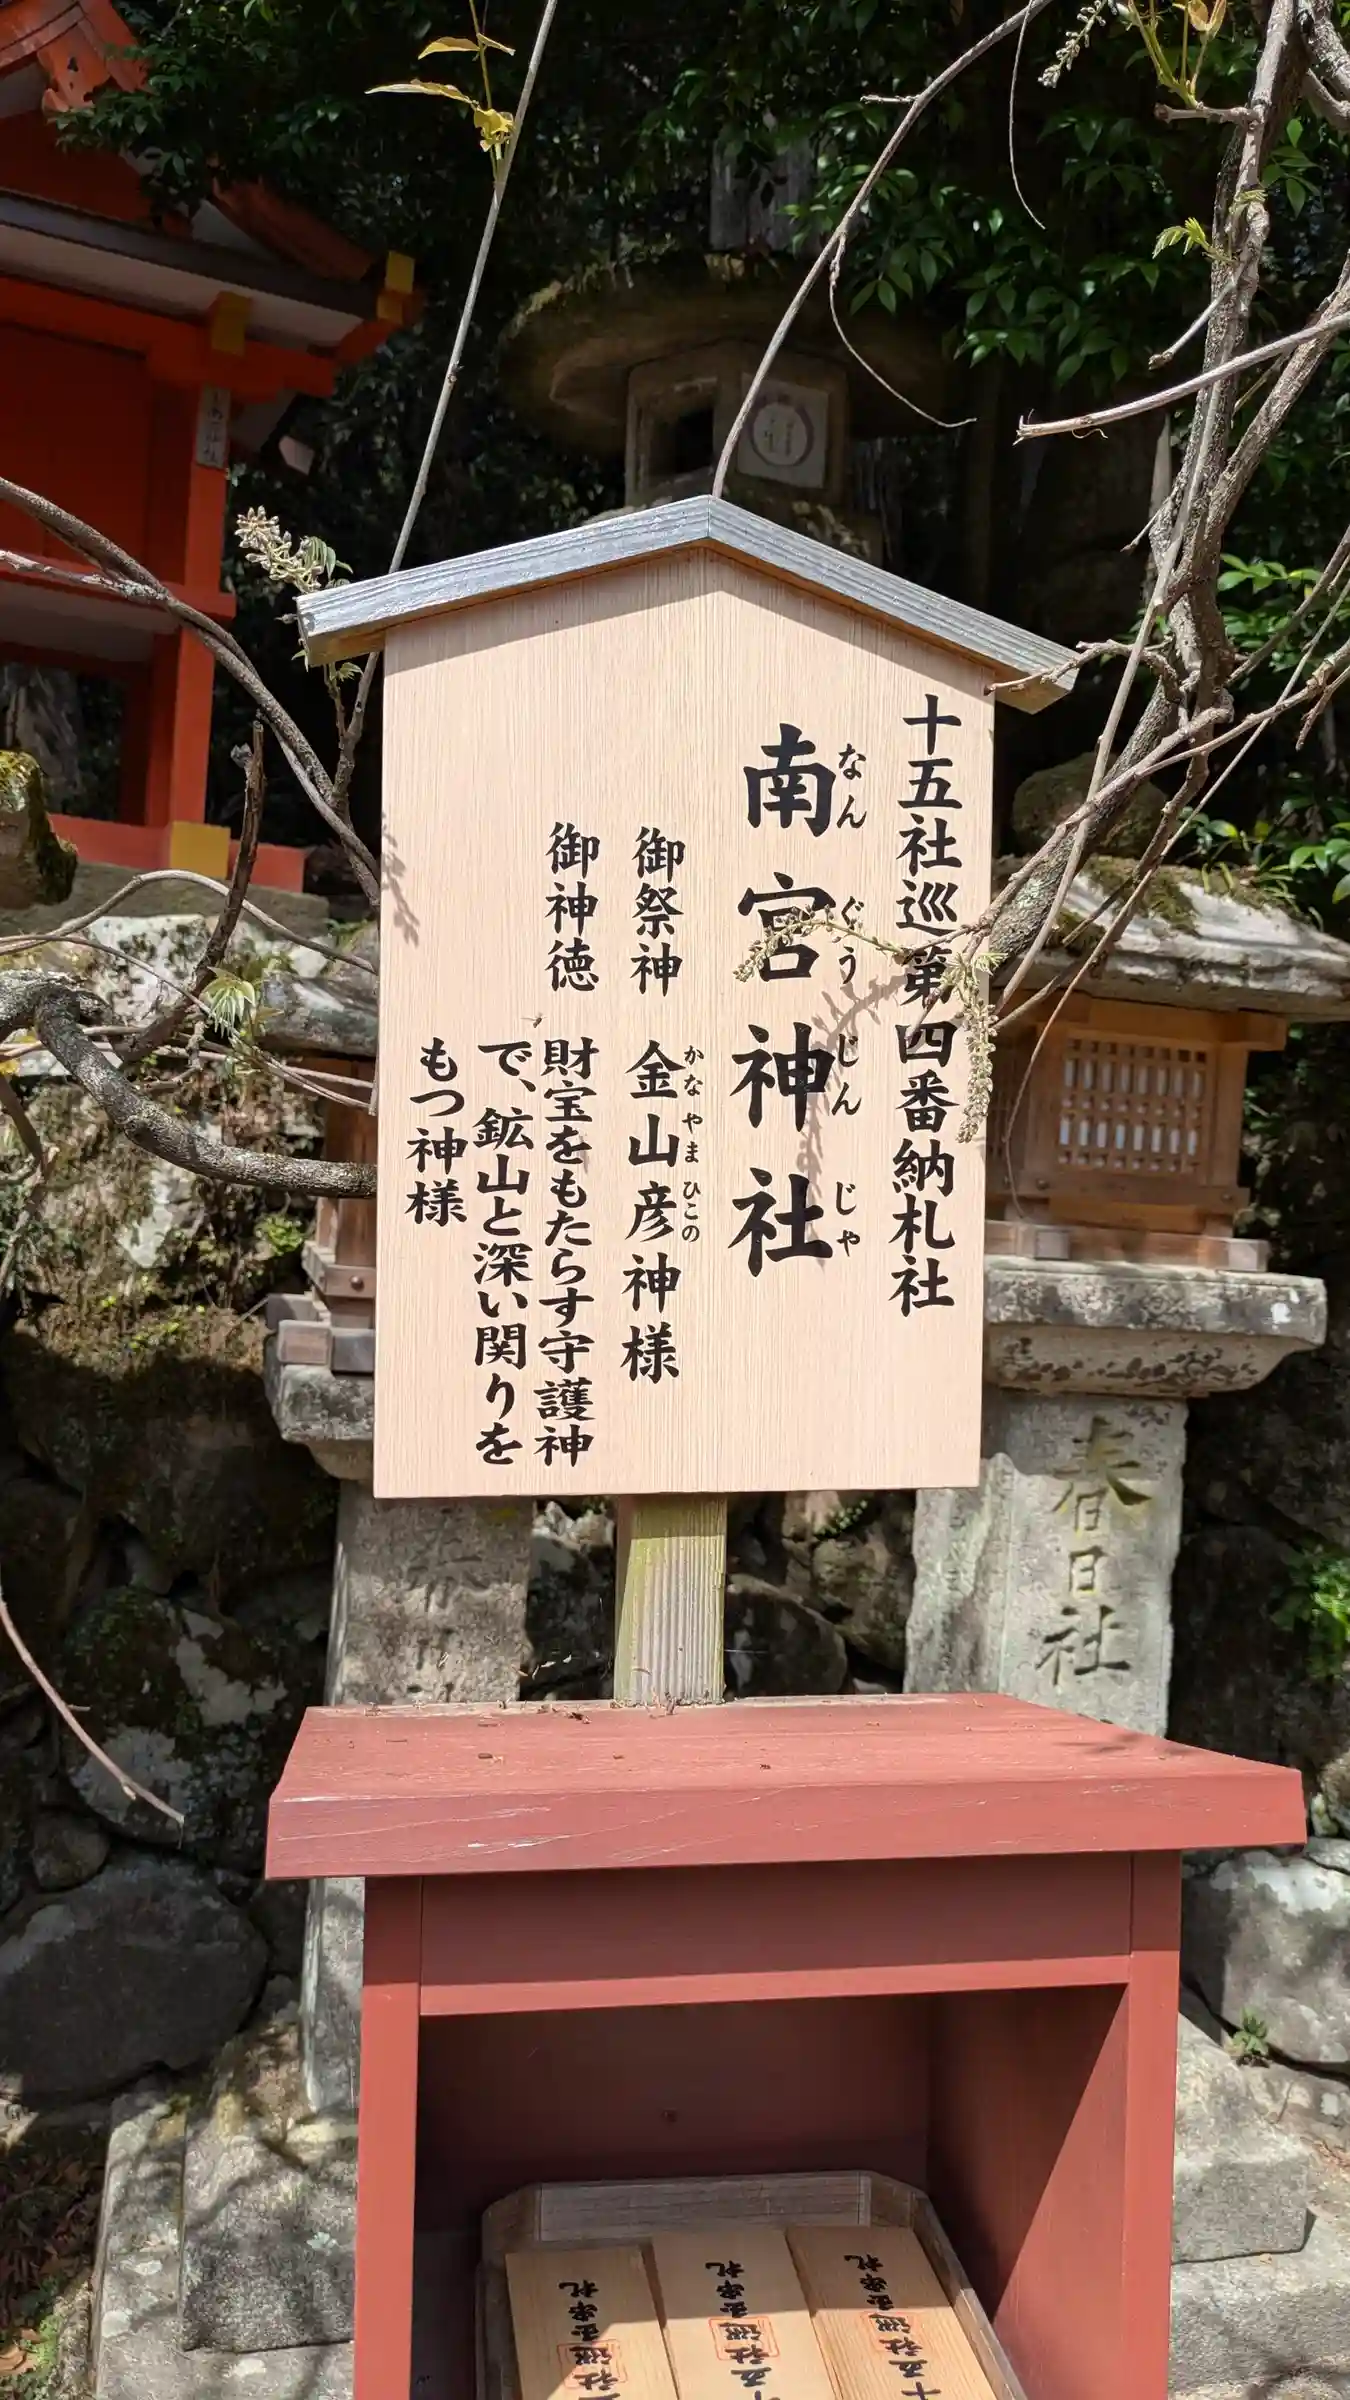 十五社巡第四番納札社
南宮神社
なんぐうじんじゃ
御祭神 金山彦神様
かなやまひこの
御神徳 財宝をもたらす守護神
で、鉱山と深い関りを
もつ神様
春日社
十五社巡玉串札